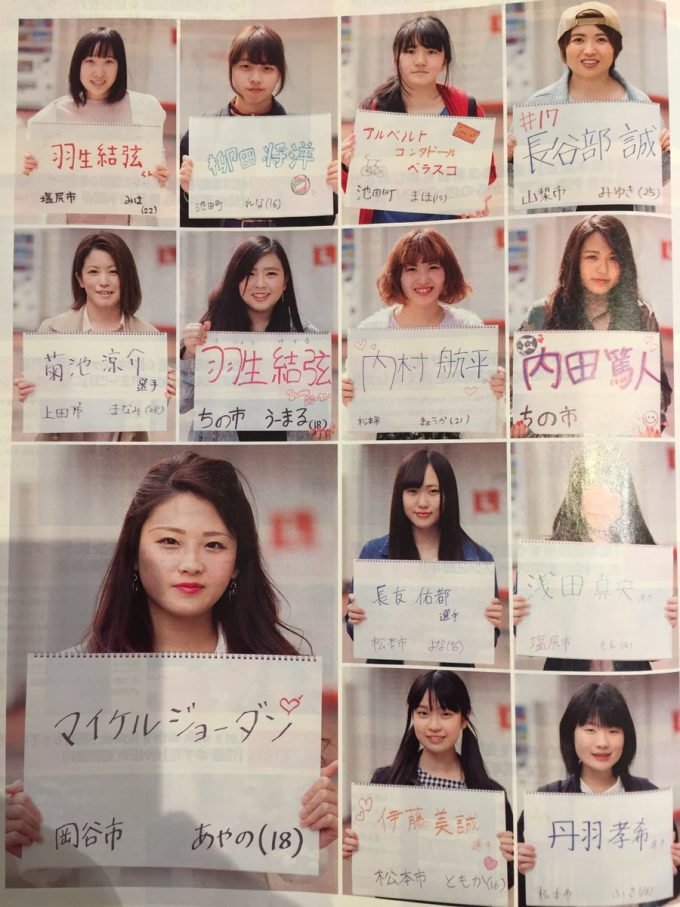 羽生結弦
くん
塩尻市 みほ
(22)
柳田 将洋
池田町 れな(16)
アルベルト
コンタドール
ベラスコ
池田町 まほ(15)
#17
長谷部 誠
山梨市 みゆき(25)
菊池 涼介
選手
上田市 まなみ(28)
羽生 結弦
ちの市 うーまる(18)
内村 航平
松本市 きょうか(21)
内田篤人
ちの市
マイケルジョーダン
岡谷市 あやの(18)
長友 佑都
選手
松本市 まな(16)
浅田真央
塩尻市
伊藤美誠
選手
松本市 ともか(16)
丹羽孝希
松本市